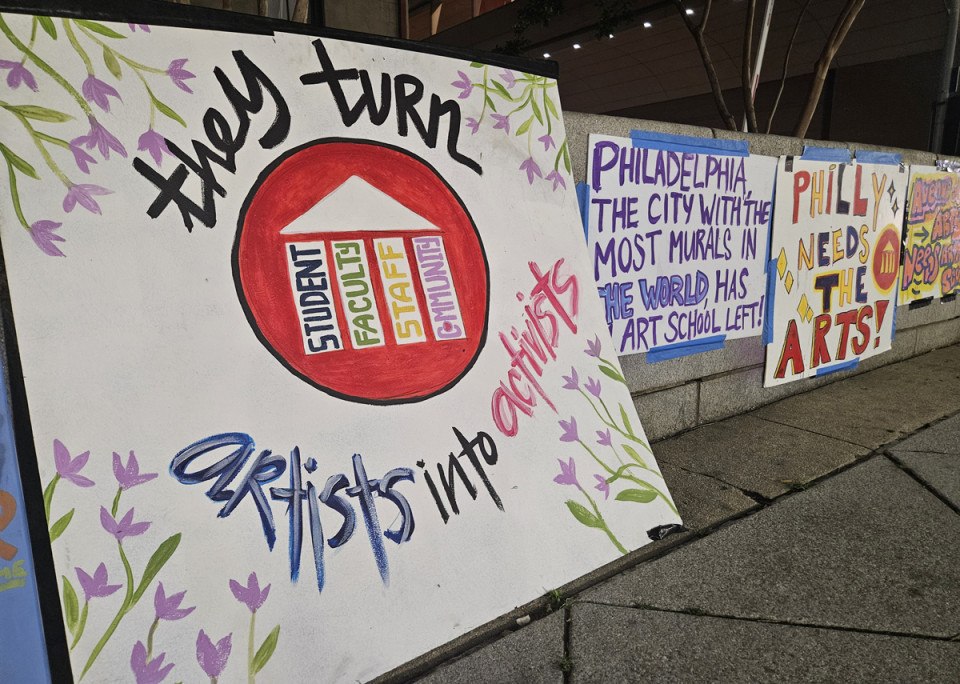 they turn
STUDENT
FACULTY
STAFF
COMMUNITY
artists into activists
PHILADELPHIA,
THE CITY WITH THE
MOST MURALS IN
THE WORLD, HAS
1 ART SCHOOL LEFT!
PHILLY
NEEDS
THE
ARTS!
NEEDS